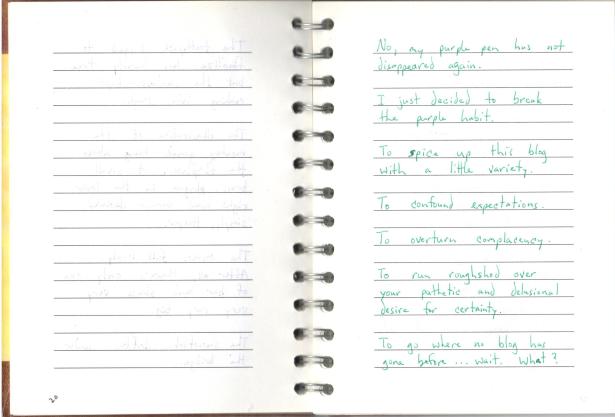 No, my purple pen has not
disappeared again.
I just decided to break
the purple habit.
To spice up this blog
with a little variety.
To confound expectations.
To overturn complacency.
To run roughshed over
your pathetic and delusional
desire for certainty.
To go where no blog has
gone before ... wait. What?
20